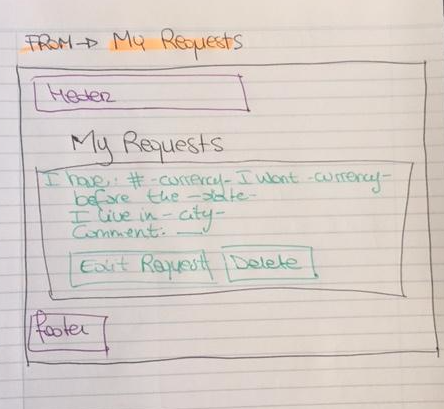 FROM → My Requests
Header
My Requests
I have: # -currency- I want -currency-
before the -date-
I live in -city-
Comment: __
Edit Request Delete
footer